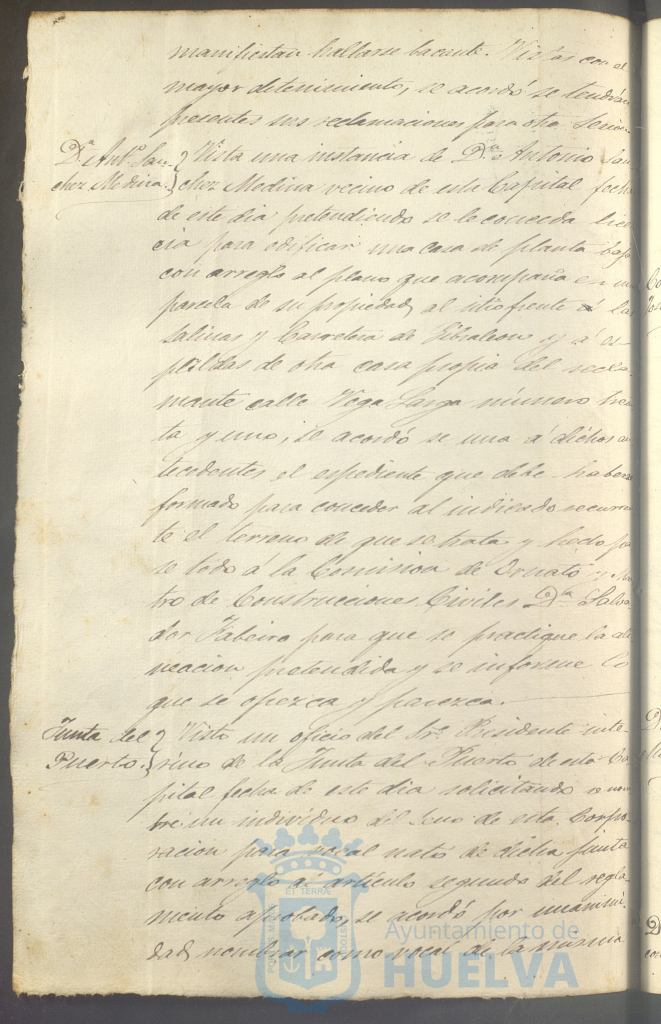 manifiestan hallarse vacante. Vistas con el
mayor detenimiento, se acordó se tendrán
presentes sus reclamaciones para otra sesion
D.n Ant.o San-
chez Medina.
Vista una instancia de D.n Antonio San
chez Medina vecino de esta Capital fecha
de este dia pretendiendo se le conceda licen
cia para edificar una casa de planta baja
con arreglo al plano que acompaña en una
parcela de su propiedad al sitio frente á las
Salinas y Carretera de Gibraleon y á es-
paldas de otra casa propia del recla-
mante calle Vega Larga número trein
ta y uno, se acordó se una á dichos an
tecedentes el espediente que debe haberse
formado para conceder al indicado recurren
te el terreno de que se trata y hecho pa
se todo á la Comision de Ornato y Maes
tro de Construcciones Civiles D.n Salva
dor para que se practique la ali
neacion pretendida y se informe lo
que se ofrezca y parezca.
Junta del
Puerto.
Visto un oficio del Sr. Presidente inte-
rino de la Junta del Puerto de esta Ca
pital fecha de este dia solicitando se nom
bre un individuo del seno de esta Corpo-
racion para vocal nato de dicha Junta
con arreglo al artículo segundo del regla
mento aprobado, se acordó por unanimi-
dad nombrar como vocal de la misma
Ayuntamiento de
HUELVA